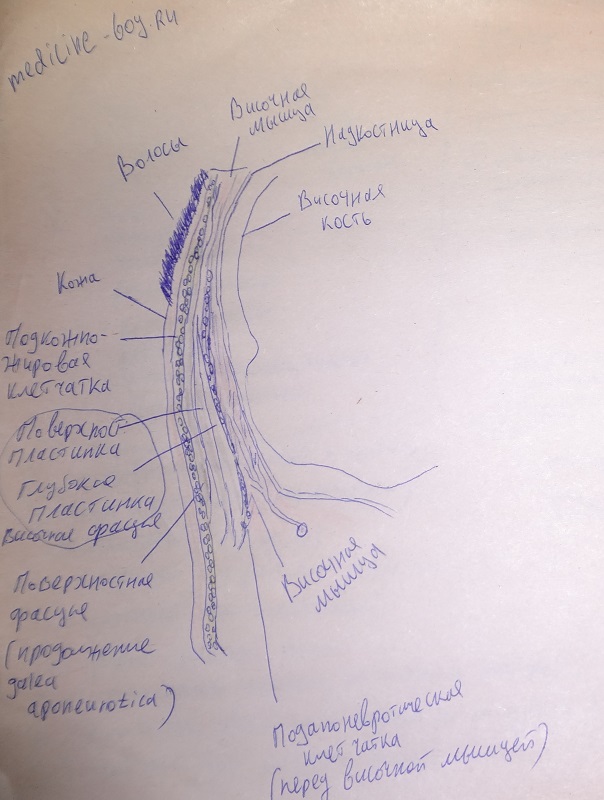 medicine-boy.ru
Височная
мышца
Надкостница
Волосы
Височная
кость
Кожа
Подкожно-
жировая
клетчатка
Поверхност
пластинка
Глубокая
пластинка
Височная фасция
Поверхностная
фасция
(продолжение
galea
aponeurotica)
Височная
мышца
Подапоневротическая
клетчатка
(перед височной мышцей)